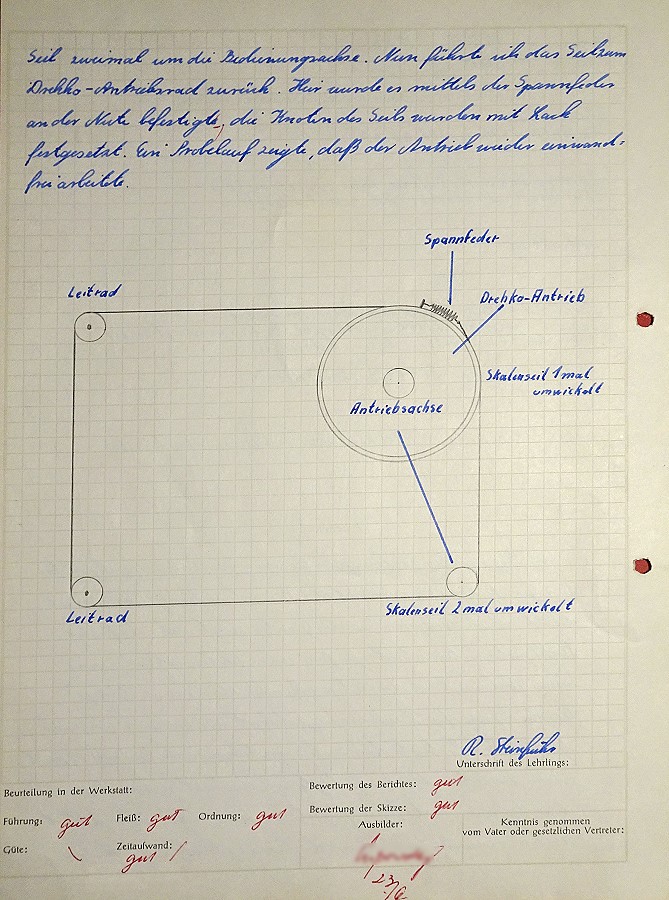 Seil zweimal um die Bedienungsachse. Nun führte ich das Seil zum
Drehko-Antriebsrad zurück. Hier wurde es mittels der Spannfeder
an der Nute befestigt, die Knoten des Seils wurden mit Lack
festgesetzt. Ein Probelauf zeigte, daß der Antrieb wieder einwand-
frei arbeitete.
Spannfeder
Leitrad
Drehko-Antrieb
Skalenseil 1mal
umwickelt
Antriebsachse
Leitrad
Skalenseil 2mal umwickelt
R. Steinfuhs
Unterschrift des Lehrlings:
Beurteilung in der Werkstatt:
Bewertung des Berichtes: gut
Bewertung der Skizze: gut
Führung: gut Fleiß: gut Ordnung: gut
Ausbilder:
Kenntnis genommen
vom Vater oder gesetzlichen Vertreter:
Güte: Zeitaufwand: gut
23/6